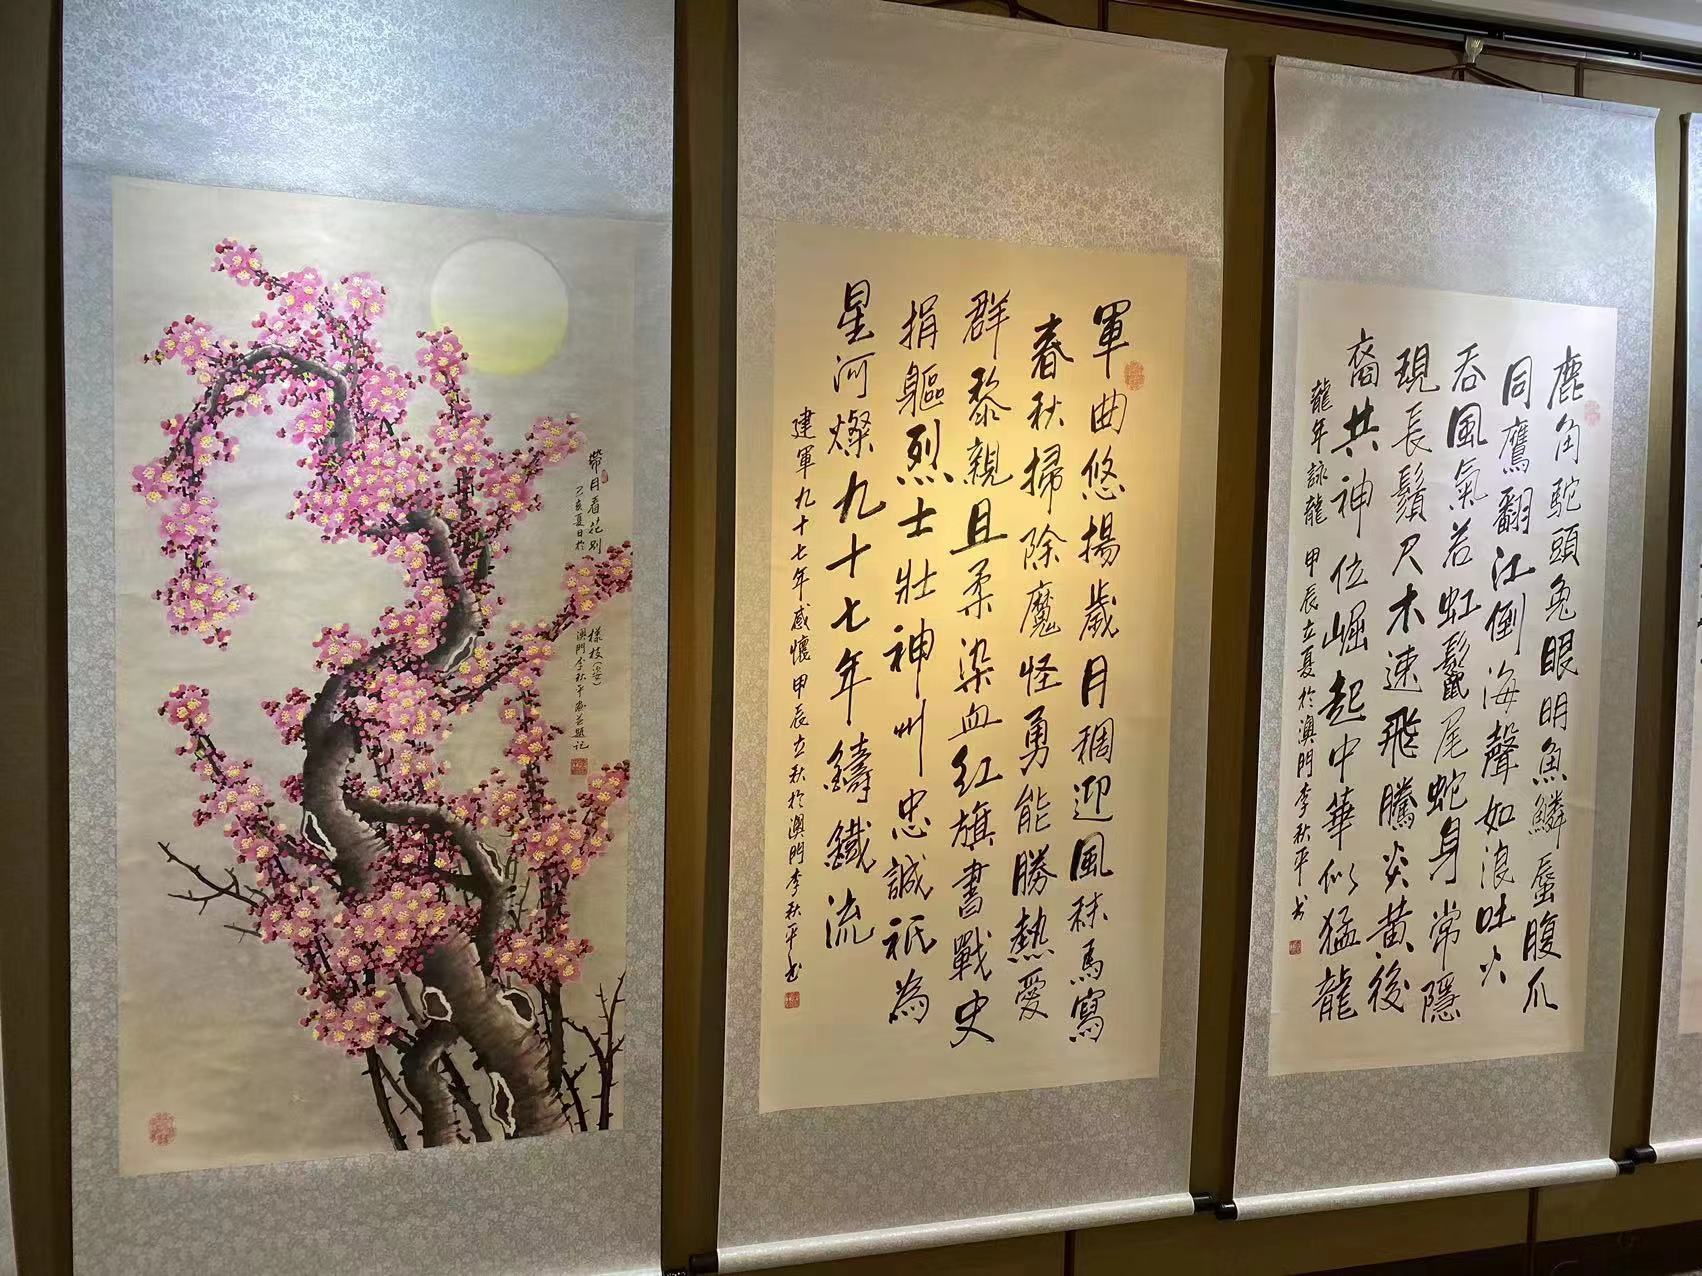 帶月看花別樣枝（姿）
己亥夏日於澳門李秋平畫並題記
軍曲悠揚歲月稠迎風秣馬寫
春秋掃除魔怪勇能勝熱愛
群黎親且柔染血紅旗書戰史
捐軀烈士壯神州忠誠祇為
星河燦九十七年鑄鐵流
建軍九十七年感懷甲辰立秋於澳門李秋平书
鹿角駝頭兔眼明魚鱗蜃腹爪
同鷹翻江倒海聲如浪吐火
吞風氣若虹鬣尾蛇身常隱
現長鬚尺木速飛騰炎黃後
裔共神位崛起中華似猛龍
龍年詠龍 甲辰立夏於澳門李秋平书